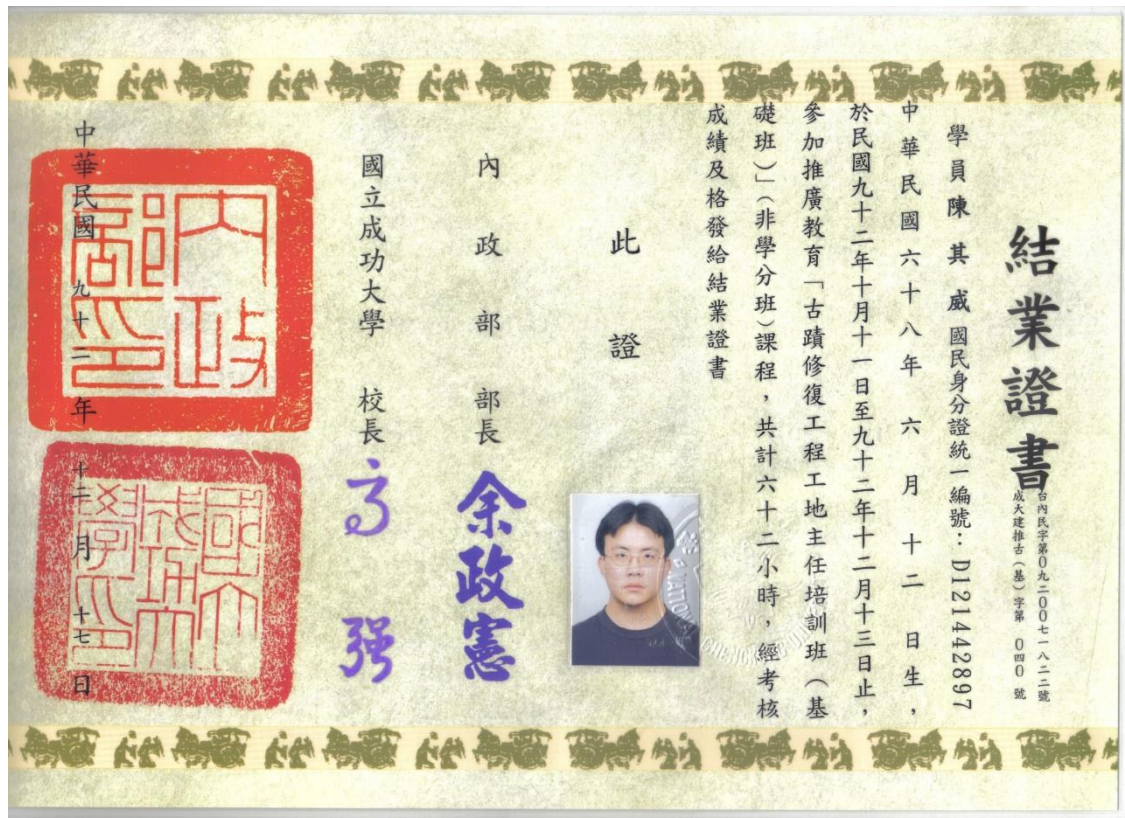 結業證書
台內民字第0九二00七一八二二號
成大建推古（基）字第 0四0 號
學員陳其威 國民身分證統一編號：D121442897
中華民國六十八年六月十二日生，
於民國九十二年十月十一日至九十二年十二月十三日止，
參加推廣教育「古蹟修復工程工地主任培訓班（基
礎班）」（非學分班）課程，共計六十二小時，經考核
成績及格發給結業證書
此證
內政部 部長 余政憲
國立成功大學 校長 高強
中華民國 九十二 年 十二 月 十七 日
內政部印
國立成功大學印